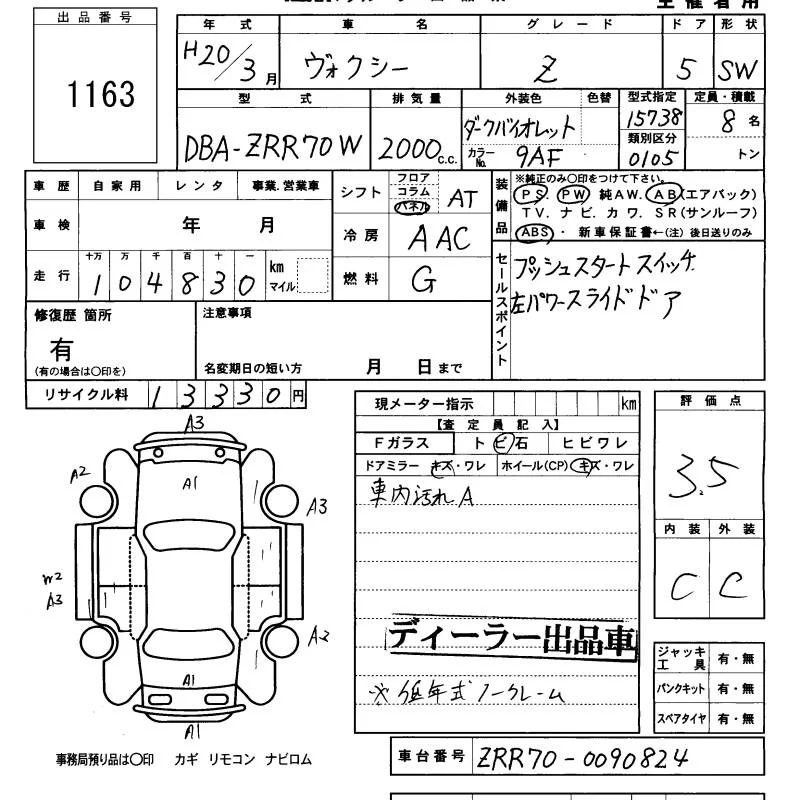 出品番号
1163
年式 車名 グレード ドア 形状
H20/3月 ヴォクシー Z 5 SW
型式 排気量 外装色 色替 型式指定 定員・積載
DBA-ZRR70W 2000c.c. ダークバイオレット 15738 8名
類別区分
カラーNo. 9AF 0105 トン
車歴 自家用 レンタ 事業.営業車
車検 年 月
走行 十万 万 千 百 十 一
1 0 4 8 3 0 km マイル
シフト フロア コラム パネル AT
冷房 AAC
燃料 G
装備品
※純正のみ○印をつけて下さい。
PS. PW 純AW. AB(エアバック)
TV. ナビ. カワ. SR(サンルーフ)
ABS・ 新車保証書←(注) 後日送りのみ
セールスポイント
プッシュスタートスイッチ
左パワースライドドア
修復歴 箇所
有
(有の場合は○印を)
注意事項
名変期日の短い方 月 日まで
リサイクル料 1 3 3 3 0 円
A3
A1
A2
A3
W2
A3
A2
A1
A1
事務局預り品は○印 カギ リモコン ナビロム
現メーター指示 km
【査定員記入】
Fガラス トビ石 ヒビワレ
ドアミラー キズ・ワレ ホイール(CP) キズ・ワレ
車内汚れA
ディーラー出品車
※低年式ノークレーム
評価点
3.5
内装 外装
C C
ジャッキ工具 有・無
パンクキット 有・無
スペアタイヤ 有・無
車台番号 ZRR70-0090824